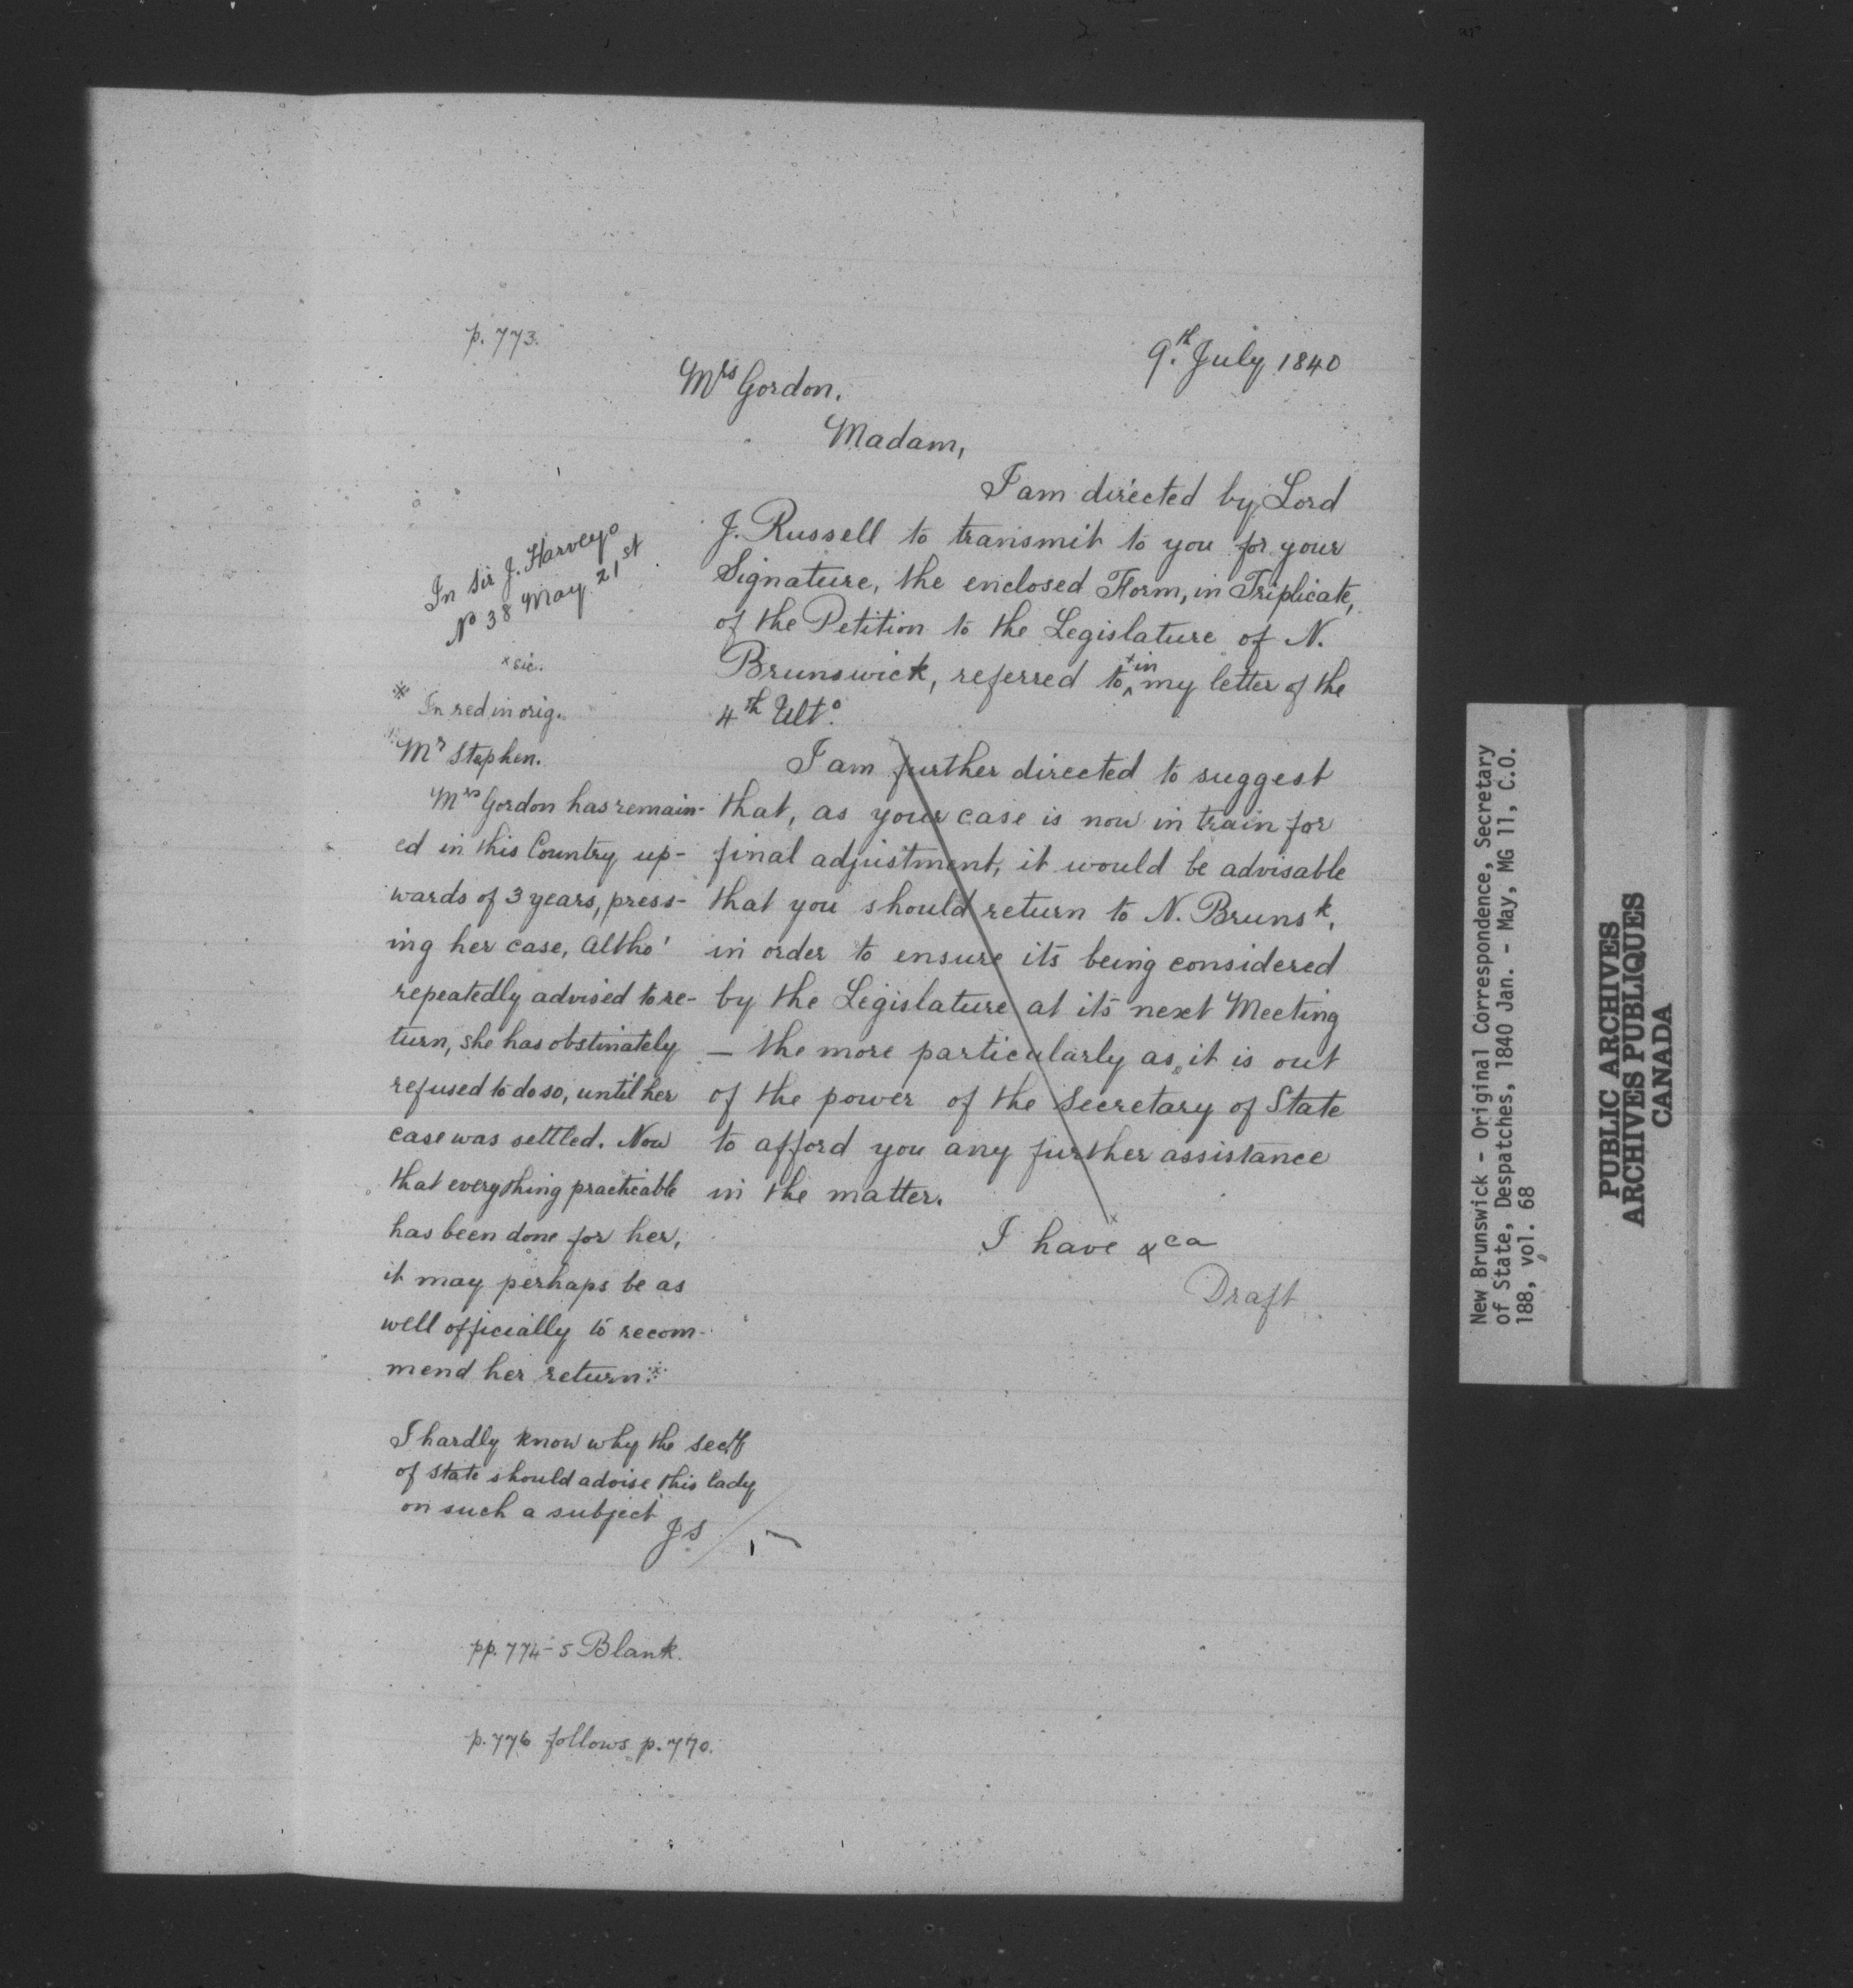 p. 773.
9.th July 1840
Mrs Gordon.
Madam,
I am directed by Lord
J. Russell to transmit to you for your
Signature, the enclosed Form, in Triplicate,
of the Petition to the Legislature of N.
Brunswick, referred to ^ xin my letter of the
4th Ulto.
I am further directed to suggest
that, as your case is now in train for
final adjustment, it would be advisable
that you should return to N. Brunsk.
in order to ensure its being considered
by the Legislature at its next Meeting
— the more particularly as it is out
of the power of the Secretary of State
to afford you any further assistance
in the matter.
I have &ca
Draft
In Sir J. Harvey's
No 38 May 21st
x sic.
※ In red in orig.
Mr Stephen.
Mrs Gordon has remain-
ed in this Country up-
wards of 3 years, press-
ing her case, altho'
repeatedly advised to re-
turn, she has obstinately
refused to do so, until her
case was settled. Now
that everything practicable
has been done for her,
it may perhaps be as
well officially to recom-
mend her return. ※
I hardly know why the Secy
of State should advise this lady
on such a subject
JS
pp. 774-5 Blank.
p. 776 follows p. 770.
New Brunswick - Original Correspondence, Secretary
of State, Despatches, 1840 Jan. - May, MG 11, C.O.
188, vol. 68
PUBLIC ARCHIVES
ARCHIVES PUBLIQUES
CANADA